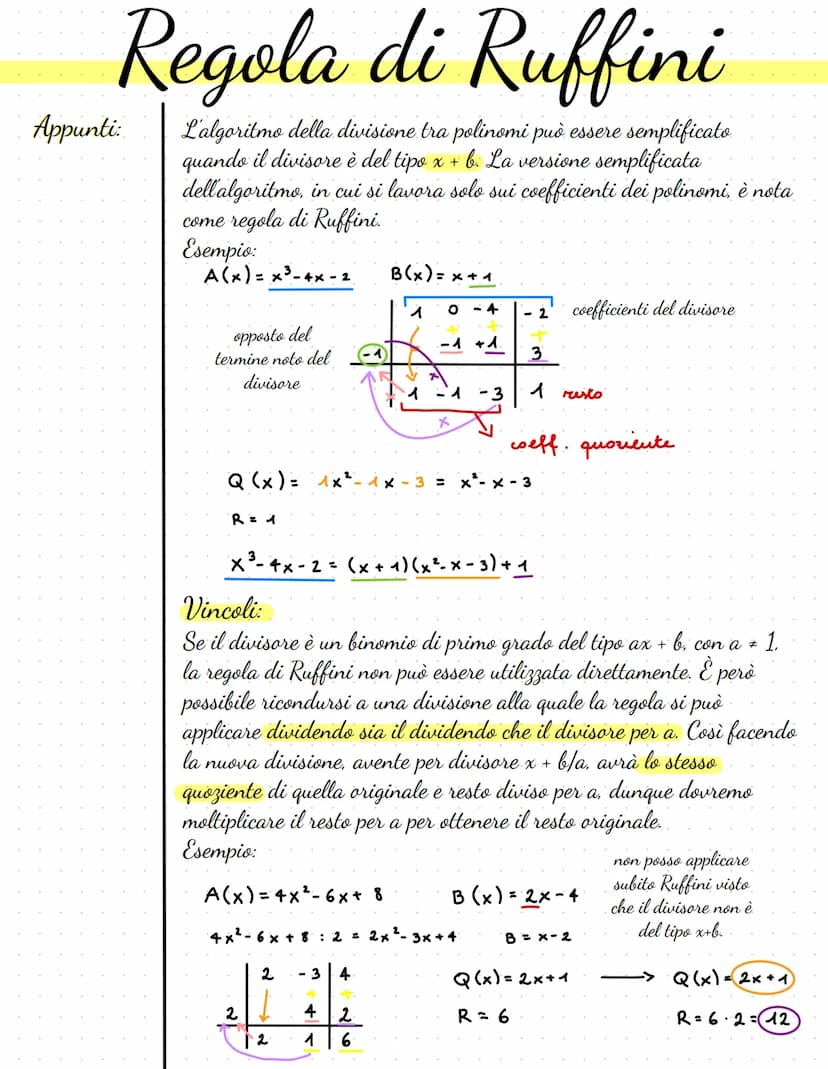 Regola di Ruffini
Appunti:
L'algoritmo della divisione tra polinomi può essere semplificato
quando il divisore è del tipo x + b. La versione semplificata
dell'algoritmo, in cui si lavora solo sui coefficienti dei polinomi, è nota
come regola di Ruffini.
Esempio:
A(x) = x³ - 4x - 2 B(x) = x + 1
1 0 - 4 - 2 coefficienti del divisore
+ + +
opposto del
termine noto del
divisore
-1 +1 3
-1
x
1 - 1 - 3 1 resto
x
coeff. quoziente
Q(x) = 1x² - 1x - 3 = x² - x - 3
R = 1
x³ - 4x - 2 = (x + 1)(x² - x - 3) + 1
Vincoli:
Se il divisore è un binomio di primo grado del tipo ax + b, con a ≠ 1,
la regola di Ruffini non può essere utilizzata direttamente. È però
possibile ricondursi a una divisione alla quale la regola si può
applicare dividendo sia il dividendo che il divisore per a. Così facendo
la nuova divisione, avente per divisore x + b/a, avrà lo stesso
quoziente di quella originale e resto diviso per a, dunque dovremo
moltiplicare il resto per a per ottenere il resto originale.
Esempio:
non posso applicare
subito Ruffini visto
che il divisore non è
del tipo x+b.
A(x) = 4x² - 6x + 8 B(x) = 2x - 4
4x² - 6x + 8 : 2 = 2x² - 3x + 4 B = x - 2
2 - 3 4
+ +
2 4 2
2 1 6
Q(x) = 2x + 1 → Q(x) = 2x + 1
R = 6 R = 6 · 2 = 12